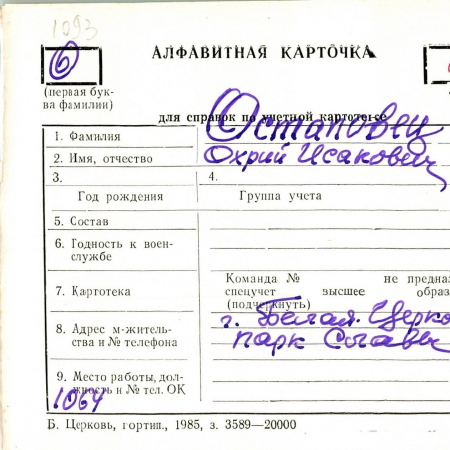 1093
О
АЛФАВИТНАЯ КАРТОЧКА
(первая бук-
ва фамилии)
для справок по учетной картотеке
1. Фамилия Остаповец
2. Имя, отчество Охрий Исакович
3. 4.
Год рождения Группа учета
5. Состав
6. Годность к воен-
службе
Команда № не предна
7. Картотека спецучет высшее образ
(подчеркнуть)
8. Адрес м-житель- г. Белая Церко
ства и № телефона парк Славы
9. Место работы, дол-
жность и № тел. ОК
1064
Б. Церковь, гортип., 1985, з. 3589—20000